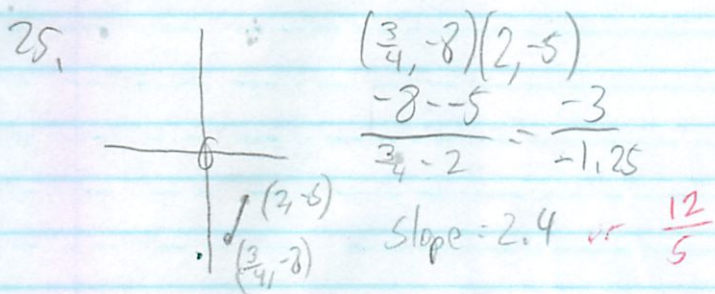 25.
(3/4, -8)(2, -5)
-8 - -5 / 3/4 - 2 = -3 / -1.25
(2, -5)
(3/4, -8)
slope = 2.4 or 12/5